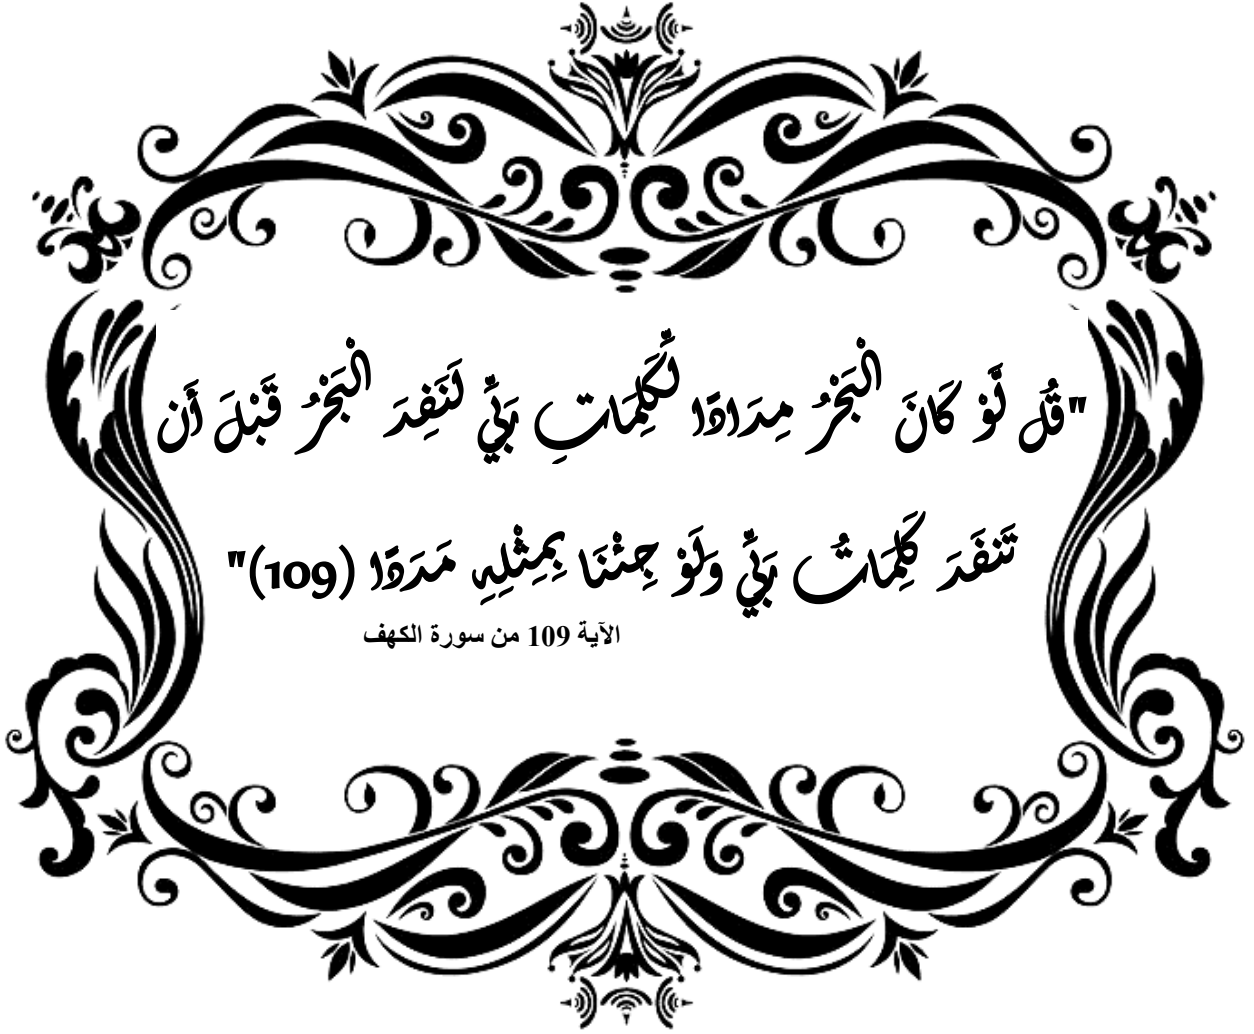 "قُل لَّوْ كَانَ الْبَحْرُ مِدَادًا لِّكَلِمَاتِ رَبِّي لَنَفِدَ الْبَحْرُ قَبْلَ أَن
تَنفَدَ كَلِمَاتُ رَبِّي وَلَوْ جِئْنَا بِمِثْلِهِ مَدَدًا (109)"
الآية 109 من سورة الكهف